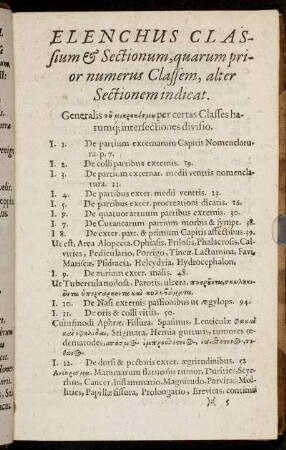 ELENCHUS CLAS-
sium & Sectionum, quarum pri-
or numerus Classem, alter
Sectionem indicat.
Generalis τοῦ μικροκόσμου per certas Classes ha-
rumq; intersectiones divisio.
I. 1. De partium externarum Capitis Nomenclatu-
ra. p. 7.
I. 2. De colli partibus externis. 19.
I. 3. De partium externar. medii ventris nomencla-
tura. 21.
I. 4. De partibus exter. medii ventris. 23.
I. 5. De partibus exter. procreationi dicatis. 26.
I. 9. De quatuor artuum partibus externis. 30.
I. 7. De Cutanearum partium morbis & sympt. 38.
I. 8. De exter. part. & primùm Capitis affectibus. 39.
Ut est, Area Alopecia, Ophiasis, Ptilosis, Phalacrosis, Cal-
vities, Pedicularío, Porrigo, Tineæ, Lactumina, Favi,
Mariscæ, Psidracia, Helcydria, Hydrocephalon,
I. 9. De aurium exter. malis. 48.
Ut Tubercula nodosa, Parotis, ulcera,
I. 10. De Nasi externis passionibus ut ægylops. 94.
I. 11. De oris & colli vitiis. 50.
Cuiusmodi Aphtræ, Fissuræ, Spasmus, Lenticulæ
Stigmata, Hernia gutturis, tumores œ-
dematodes,
I. 12. De dorsi & pectoris exter. ægritudinibus. 52
Mammarum flatuosus tumor, Durities, Scyr-
rhus, Cancer, Inflammatio, Magnitudo, Parvitas, Mol-
lities, Papillæ fissura, Prolongatio, Brevitas, continui
5